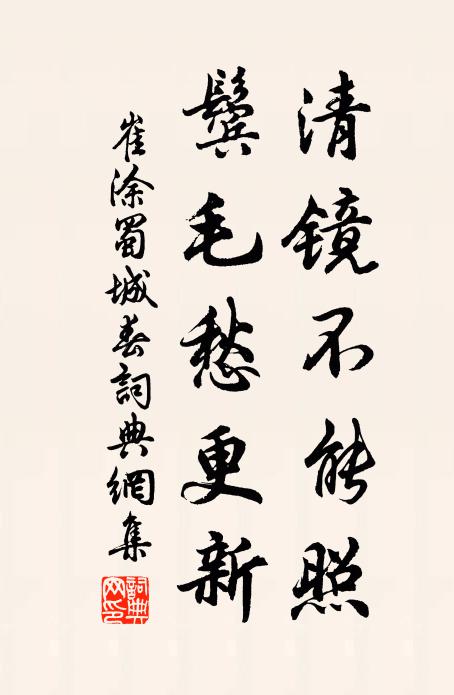 清镜不能照
鬓毛愁更新
崔涂蜀城春詞典網集
詞典网印